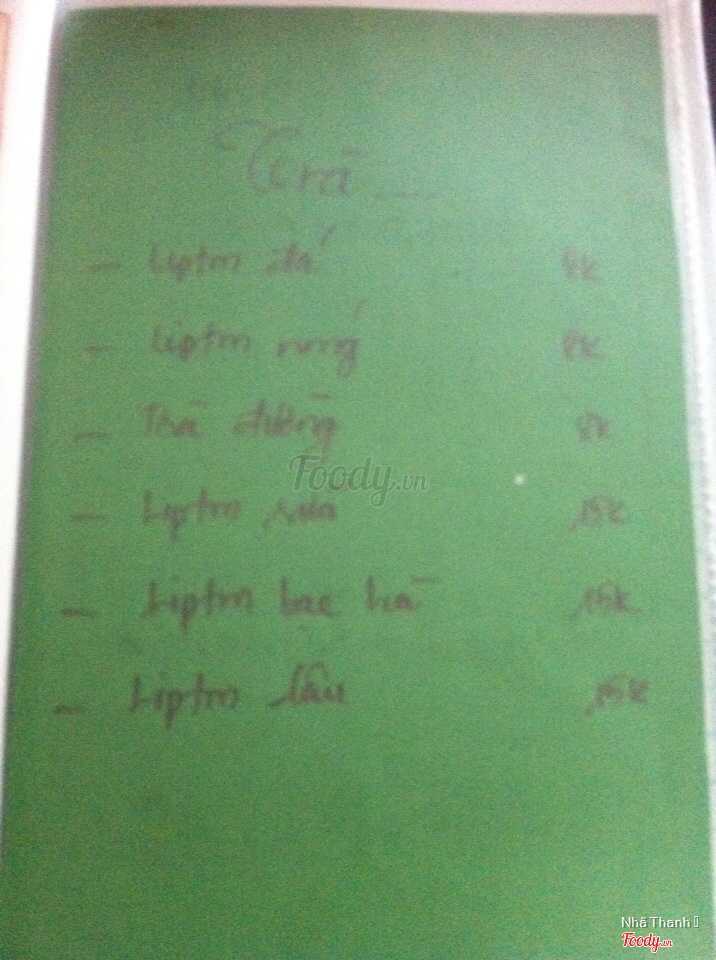 Trà
- Lipton đá 8k
- Lipton nóng 8k
- Trà đường 8k
- Lipton sữa 15k
- Lipton bạc hà 15k
- Lipton dâu 15k
Foody.vn
Nhã Thanh
Foody.vn